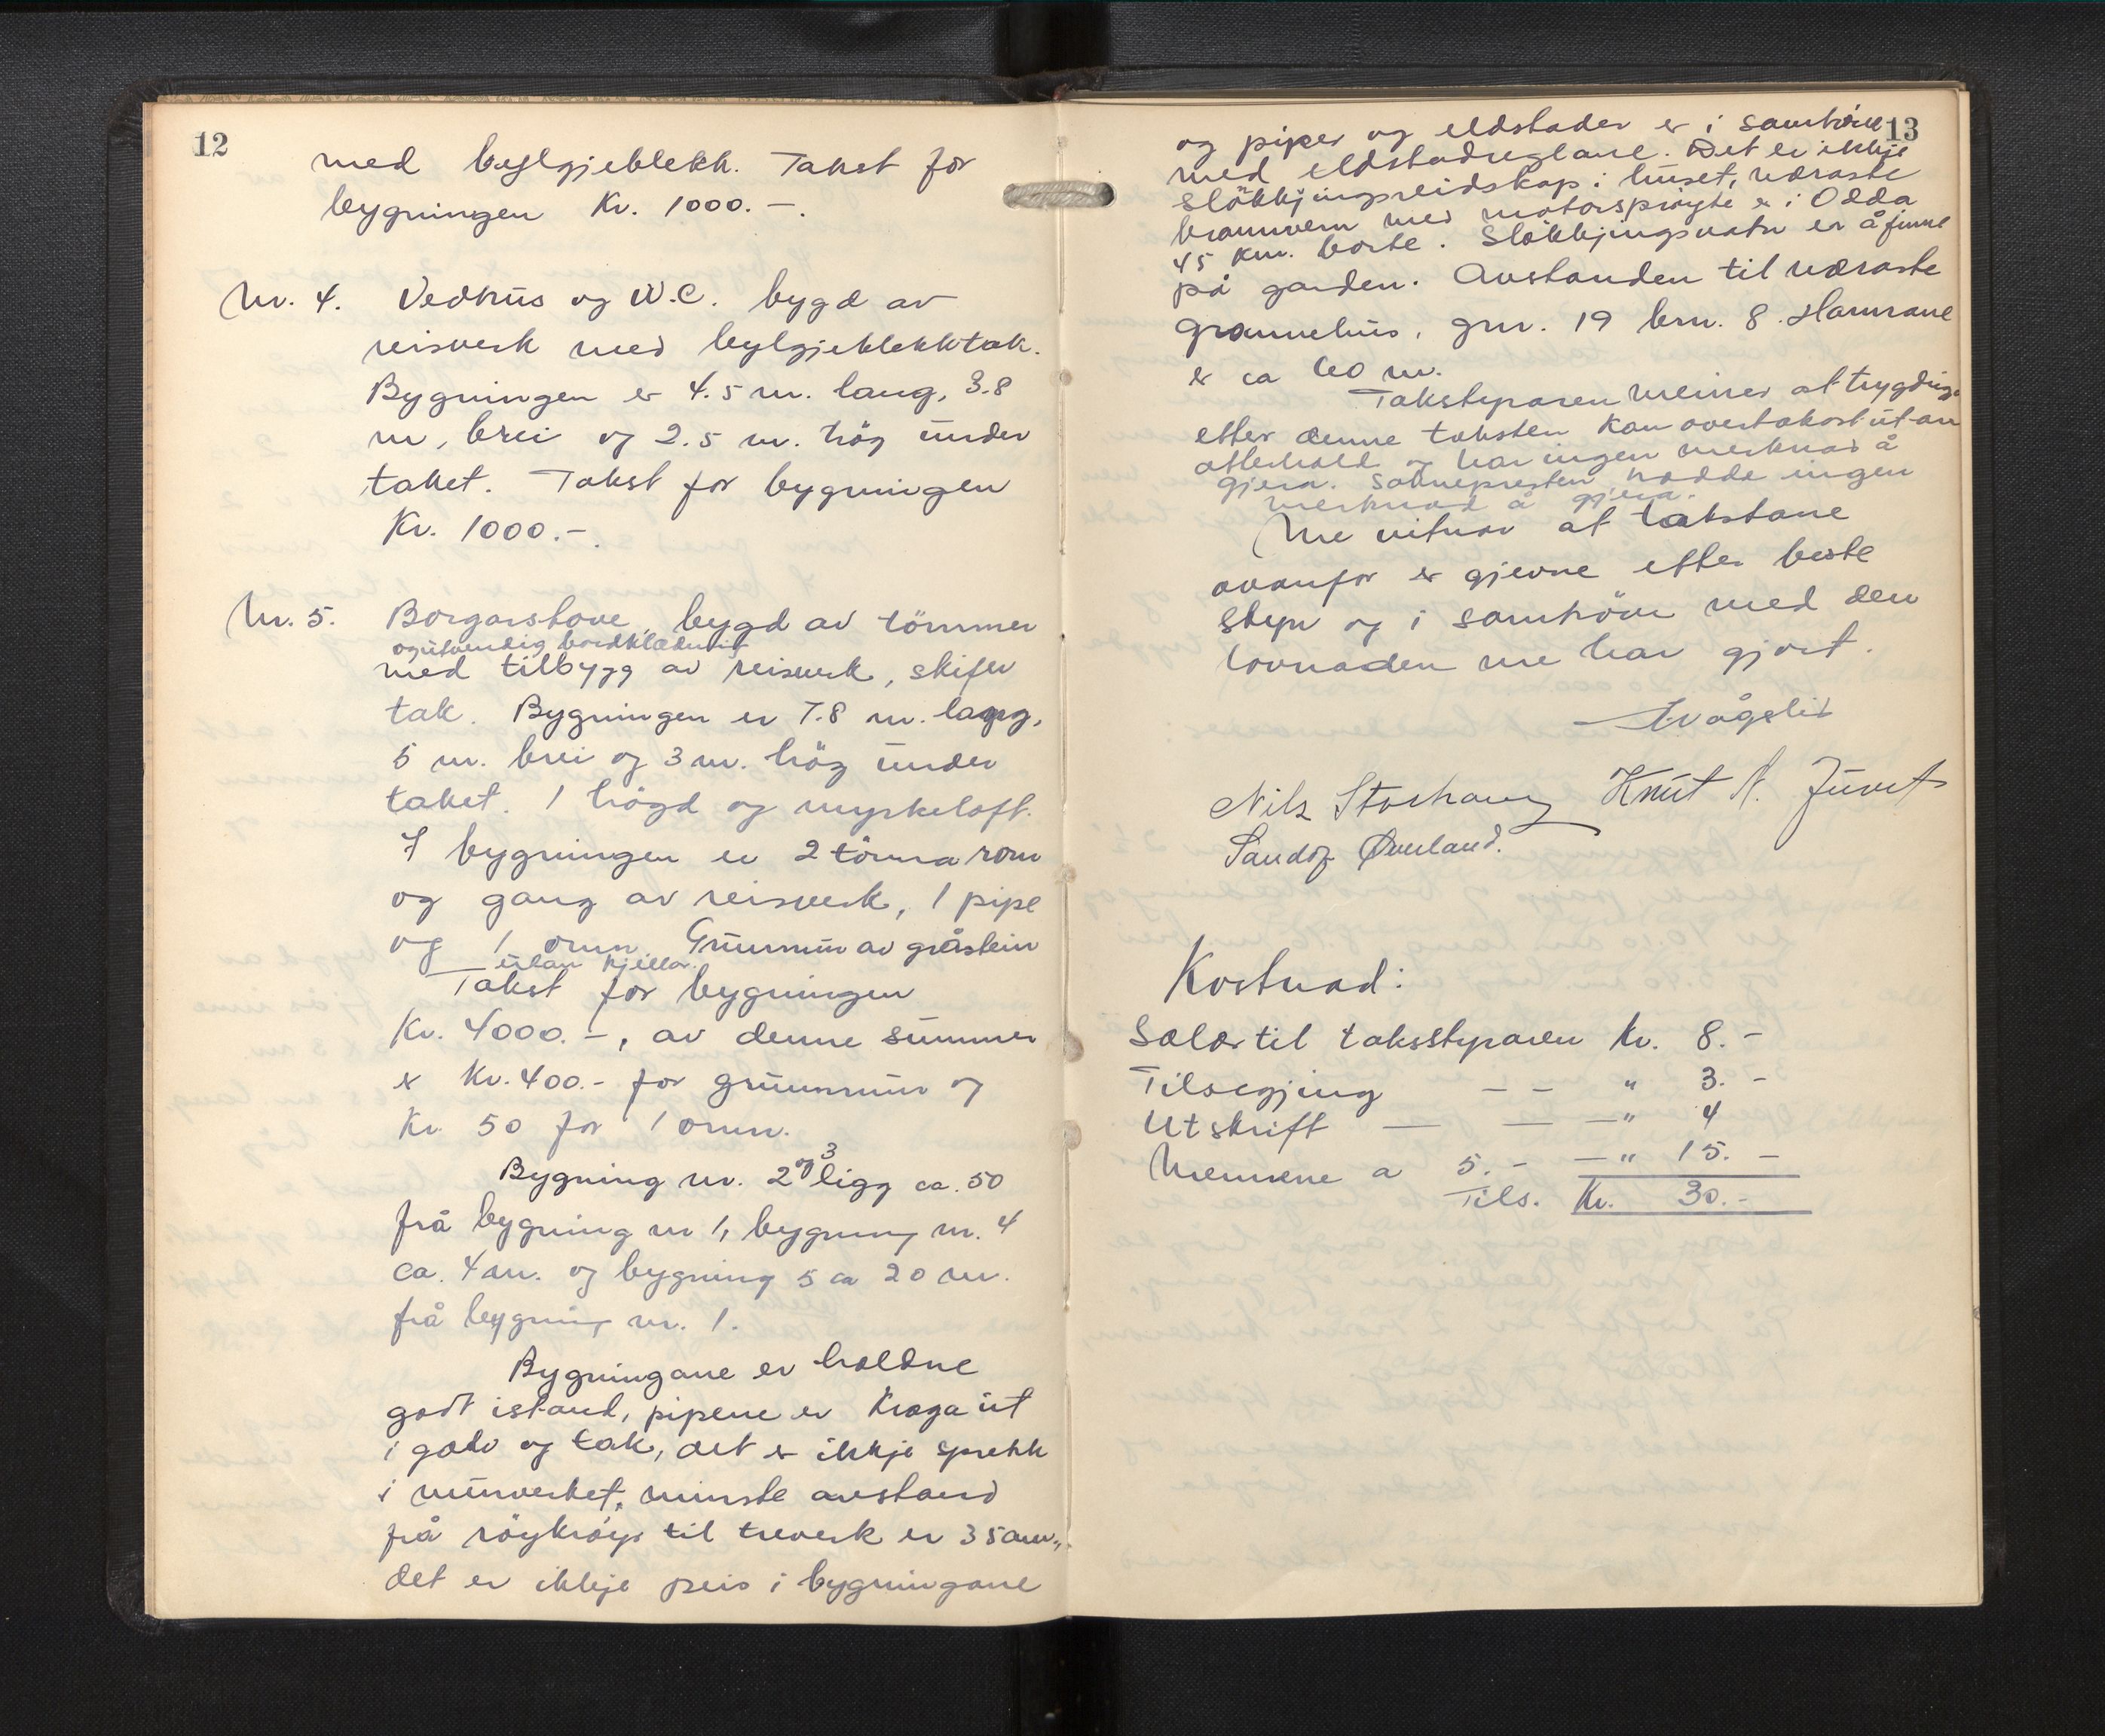 12
med bylgjeblekk. Takst for
bygningen Kr. 1000.-.
Nr. 4. Vedhus og W.C. bygd av
reisverk med bylgjeblekktak.
Bygningen er 4.5 m. lang, 3.8
m, brei og 2.5 m. hög under
taket. Takst for bygningen
Kr. 1000.-.
Nr. 5. Borgarstove, bygd av tömmer
og utvendig bordklædning
med tilbygg av reisverk, skifer
tak. Bygningen er 7.8 m. lang,
5 m. brei og 3 m. hög under
taket. 1 högd og myrkeloft.
I bygningen er 2 tömra rom
og gang av reisverk, 1 pipe
og 1 omn. Grunnmur av gråstein
utan kjellar.
Takst for bygningen
Kr. 4000.-, av denne summen
er Kr. 400.- for grunnmur og
Kr. 50 for 1 omn.
Bygning nr. 2 og 3 ligg ca. 50
frå bygning nr 1, bygning nr. 4
ca. 4 m. og bygning 5 ca 20 m.
frå bygning nr. 1.
Bygningane er haldne
godt istand, pipene er kraga ut
i golv og tak, det er ikkje sprekk
i murverket, minste avstand
frå röykröyr til treverk er 35 cm.,
det er ikkje peis i bygningane
13
og piper og eldstader er i samhöve
med eldstadreglane. Det er ikkje
slökkjingsreidskap i huset, næraste
brannvern med motorspröyte er i Odda
45 km. borte. Slökkjingsvatn er å finne
på garden. Avstanden til næraste
grannehus, gnr. 19 brn. 8. Hamrane
er ca 60 m.
Takstyraren meiner at trygding
etter denne taksten kan overtakast utan
atterhald og har ingen merknad å
gjera. Soknepresten hadde ingen
merknad å gjera.
Me vitnar at takstane
ovanfor er gjevne etter beste
skyn og i samhöve med den
lovnaden me har gjort.
Vågslid
Nils Storhaug Knut N. Juvet
Sandof Øverland.
Kostnad:
Salær til takstyraren Kr. 8.-
Tilsegjing - - " 3.-
Utskrift — — — " 4
Mennene a 5.- — " 15.-
Tils. Kr. 30.-